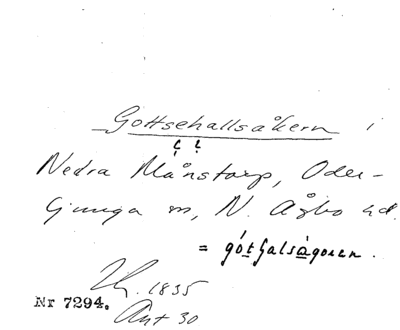 Gottsehallsåkern i
Nedra Månstorp, Oder-
ljunga sn, N. Åsbo hd.
= gòtsalságoren.
1835
Nr 7294. Ant 30